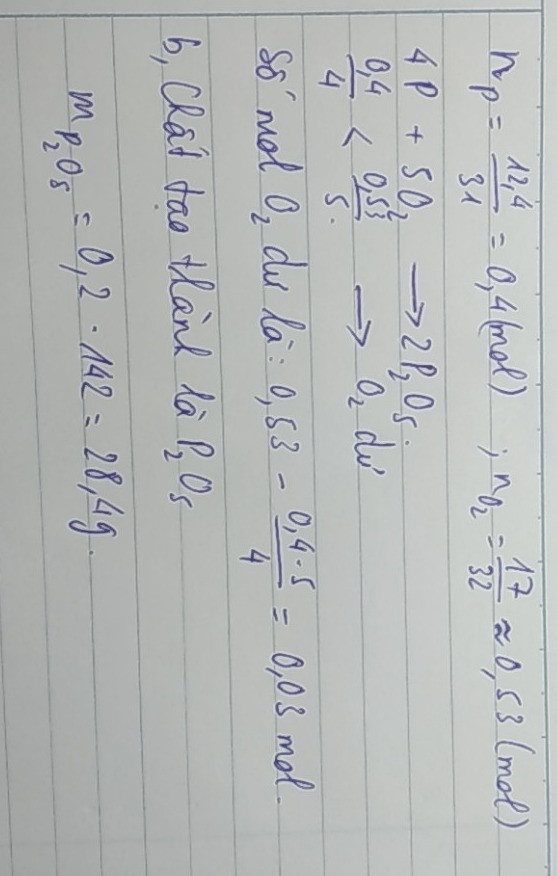 n_P = 12,4/31 = 0,4 (mol) ; n_O₂ = 17/32 ≈ 0,53 (mol)
4P + 5O₂ → 2P₂O₅.
0,4/4 < 0,53/5. → O₂ dư
Số mol O₂ dư là: 0,53 - 0,4.5/4 = 0,03 mol.
b, Chất tạo thành là P₂O₅
m_P₂O₅ = 0,2 . 142 = 28,4g.